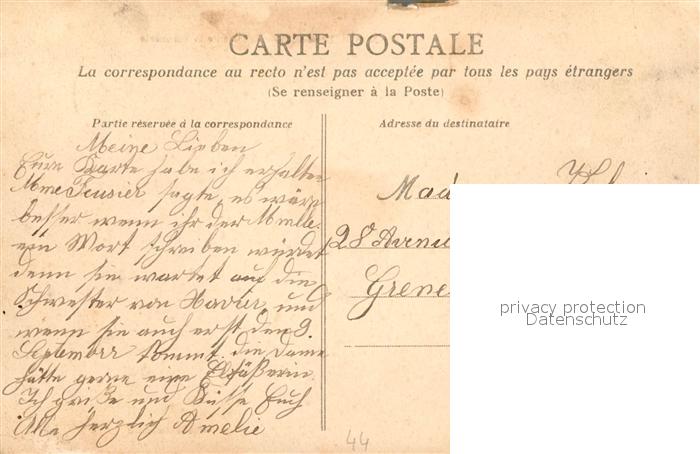 CARTE POSTALE
La correspondance au recto n'est pas acceptée par tous les pays étrangers
(Se renseigner à la Poste)
Partie réservée à la correspondance
Adresse du destinataire
Meine Lieben
Eure Karte habe ich erhalten
Mme Teusier sagte, es wäre
besser wenn ihr der Mmelle.
ein Wort schreiben würdet
denn sie wartet auf die
Schwester von Xavier, und
wenn sie auch erst den 9.
Septembre kommt. die Dame
hätte gerne eine Elsäßerin.
Ich grüße und Küsse Euch
Alle herzlich Amelie
Mad
28 Avenu
Grene
privacy protection
Datenschutz
44